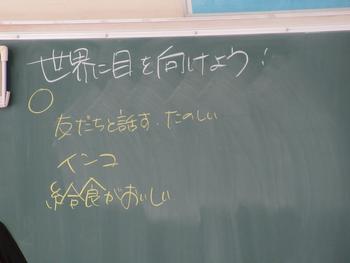 世界に目を向けよう!
友だちと話す.たのしい
インコ
給食がおいしい